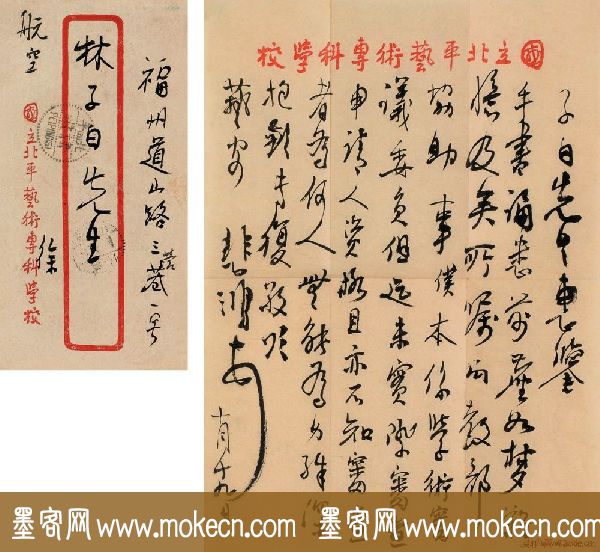 航空
福州道山路三巷一号
林子白先生
國立北平藝術專科學校
徐
國立北平藝術專科學校
子白先生惠鉴
手書誦悉前塵如夢
及矣所囑向教部
協助事僕本係學術審
議委員但迄未實際審查
申請人資格且亦不知審
者為何人無能為力殊深
抱歉專復敬頌
藝安 悲鴻
墨客网 www.mokecn.com 墨客网 www.mokecn.com